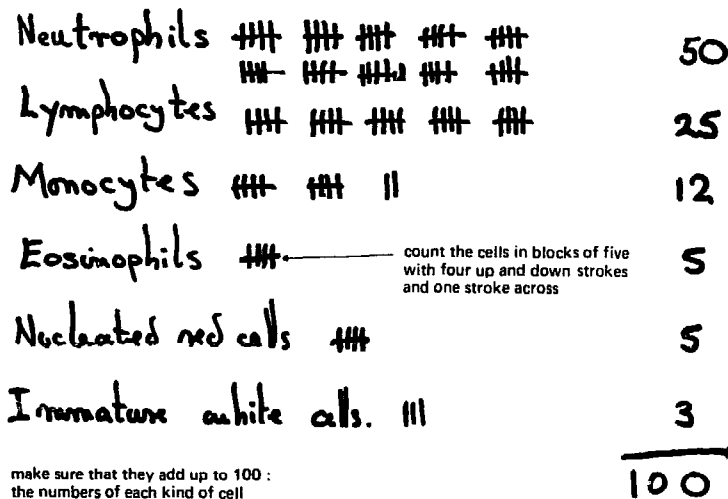 Neutrophils 50
Lymphocytes 25
Monocytes 12
Eosinophils 5
count the cells in blocks of five
with four up and down strokes
and one stroke across
Nucleated red cells 5
Immature white cells. 3
make sure that they add up to 100 :
the numbers of each kind of cell
100